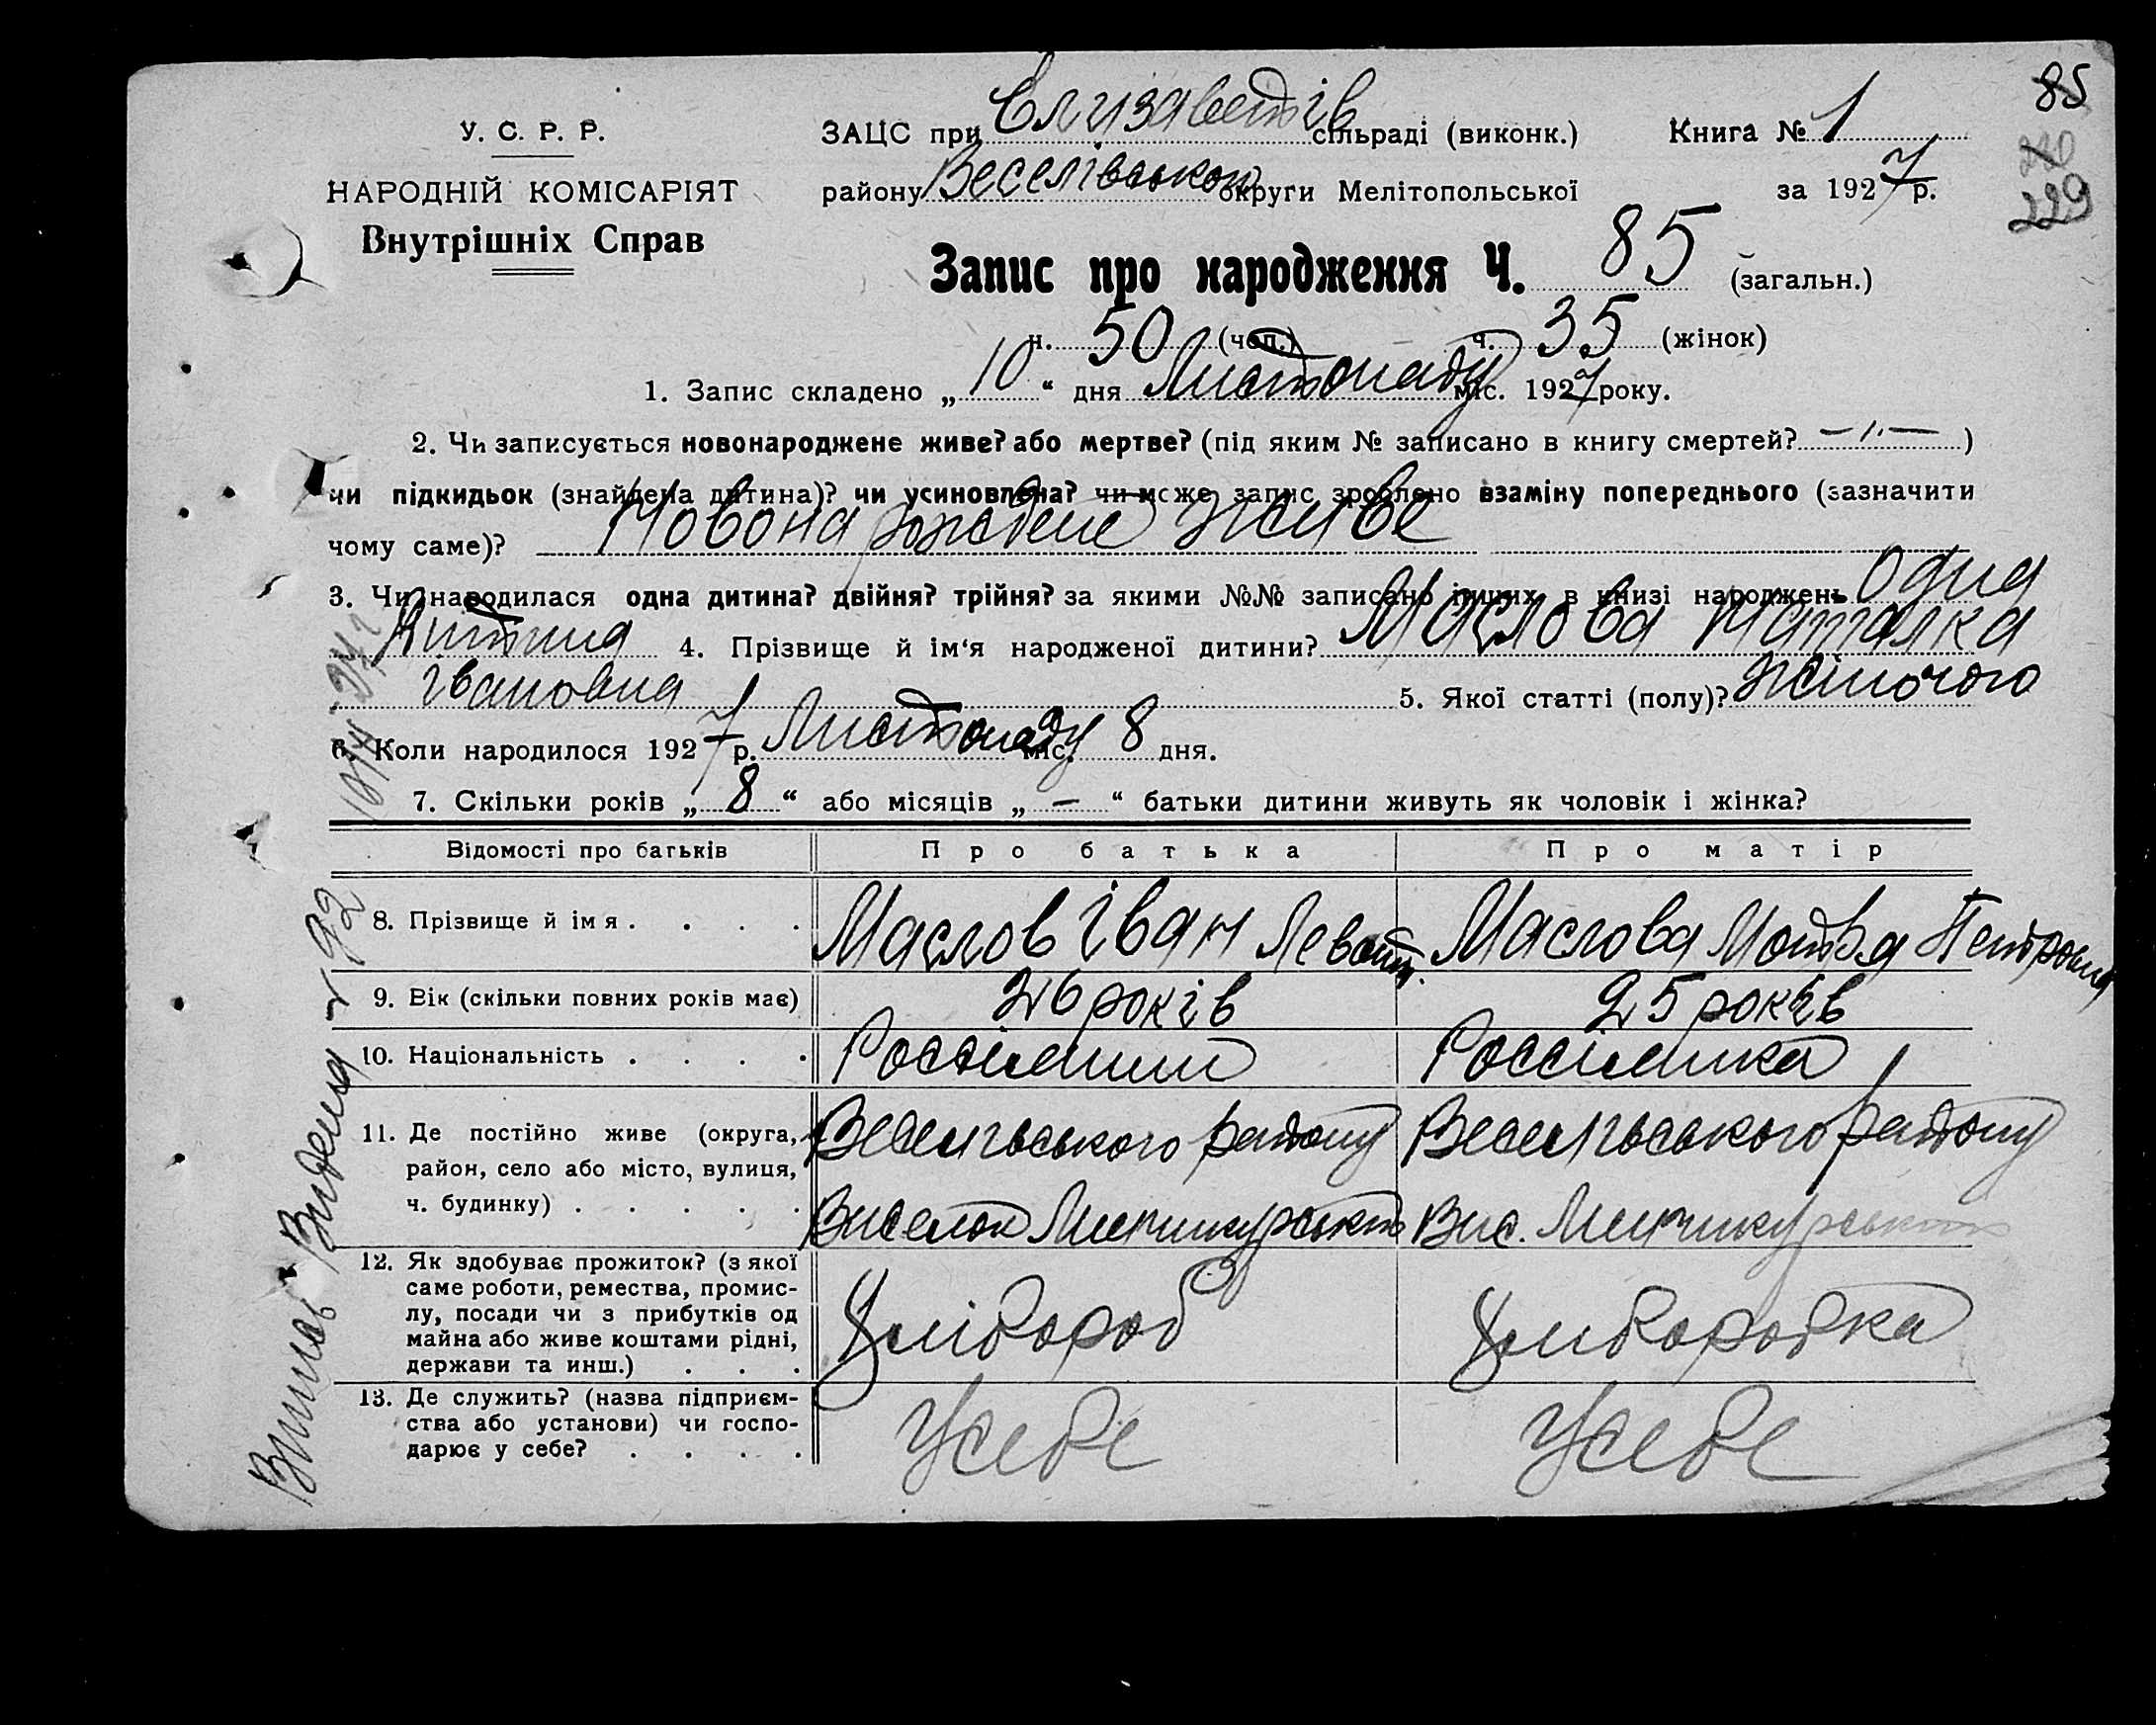 85
У. С. Р. Р.
ЗАЦС при Єлизаветів сільраді (виконк.) Книга № 1
229
НАРОДНІЙ КОМІСАРІЯТ
району Веселівського округи Мелітопольської за 1927 р.
Внутрішніх Справ
Запис про народження Ч. 85 (загальн.)
ч. 50 (чол.) ч. 35 (жінок)
1. Запис складено „ 10 “ дня Листопаду міс. 1927 року.
2. Чи записується новонароджене живе? або мертве? (під яким № записано в книгу смертей? — „ — )
чи підкидьок (знайдена дитина)? чи усиновлена? чи може запис зроблено взаміну попереднього (зазначити
чому саме)? Новонарождене живе
3. Чи народилася одна дитина? двійня? трійня? за якими №№ записано інших в книзі народжень Одна
дитина 4. Прізвище й ім‘я народженої дитини? Маслова Наталка
Івановна 5. Якої статті (полу)? жіночого
6. Коли народилося 1927 р. Листопаду міс. 8 дня.
7. Скільки років „ 8 “ або місяців „ — “ батьки дитини живуть як чоловік і жінка?
Відомості про батьків Про батька Про матір
8. Прізвище й імя . . . . Маслов Іван Маслова Мотря Петровна
9. Вік (скільки повних років має) 26 років 25 років
10. Національність . . . .
11. Де постійно живе (округа, Веселівського району Веселівського району
район, село або місто, вулиця,
ч. будинку) . . . . . Виселок Вис.
12. Як здобуває прожиток? (з якої
саме роботи, ремества, промис-
лу, посади чи з прибутків од
майна або живе коштами рідні, Хлібороб Хлібородка
держави та инш.) . . .
13. Де служить? (назва підприєм-
ства або установи) чи госпо- У себе У себе
дарює у себе? . . . .